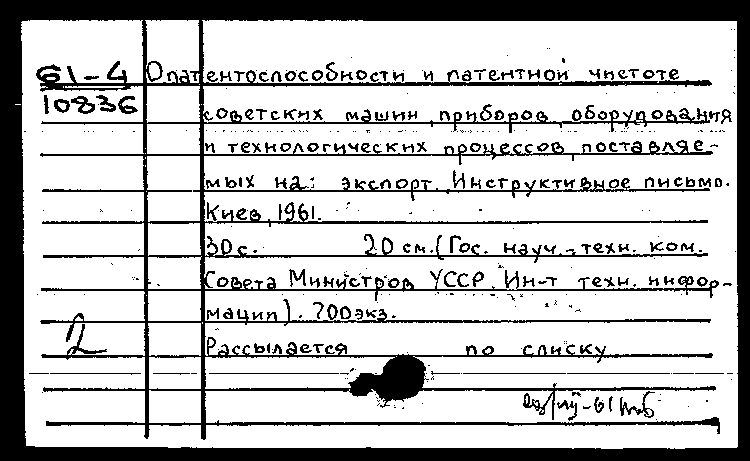 61-4 О патентоспособности и патентной чистоте
10836
советских машин, приборов, оборудования
и технологических процессов, поставляе-
мых на: экспорт. Инструктивное письмо.
Киев, 1961.
30 с. 20 см. (Гос. науч.-техн. ком.
Совета Министров УССР. Ин-т техн. инфор-
мации). 700 экз.
2
Рассылается по списку